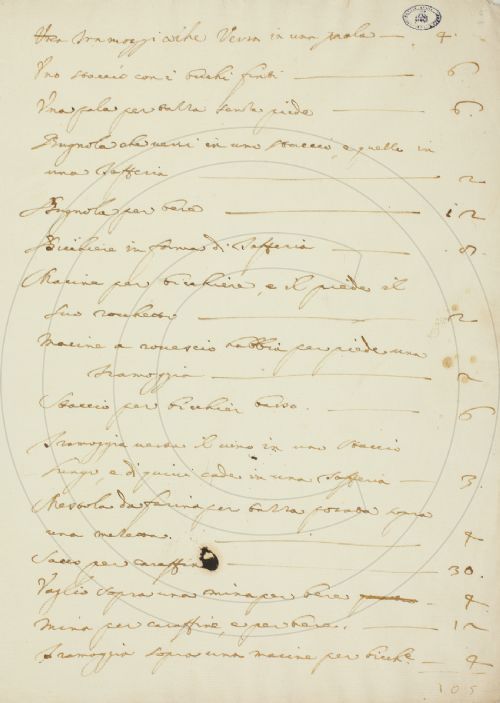 Una Tramoggia che Versa in una pala — 4.
Uno staccio con i buchi finti — 6
Una pala per tazza senza piede — 6.
Bugnola che versi in uno staccio, e quello in
una Tafferia — 2
Bugnola per bere — 12
Bicchiere in forma di Tafferia — 8.
Macine per bicchiere, e il piede il
suo rocchetto — 2
Macine a rovescio habbia per piede una
tramoggia — 2
Staccio per bicchier basso. — 6
Tramoggia versa il vino in uno staccio
lungo, e di quivi cade in una Tafferia — 3.
Mestola da farina per tazza posata sopra
una — 4
Sacco per caraffina — 30.
Vaglio sopra una mina per bere — 4
Mina per caraffine, e per bere. — 12
Tramoggia sopra una macine per bicche — 4
105